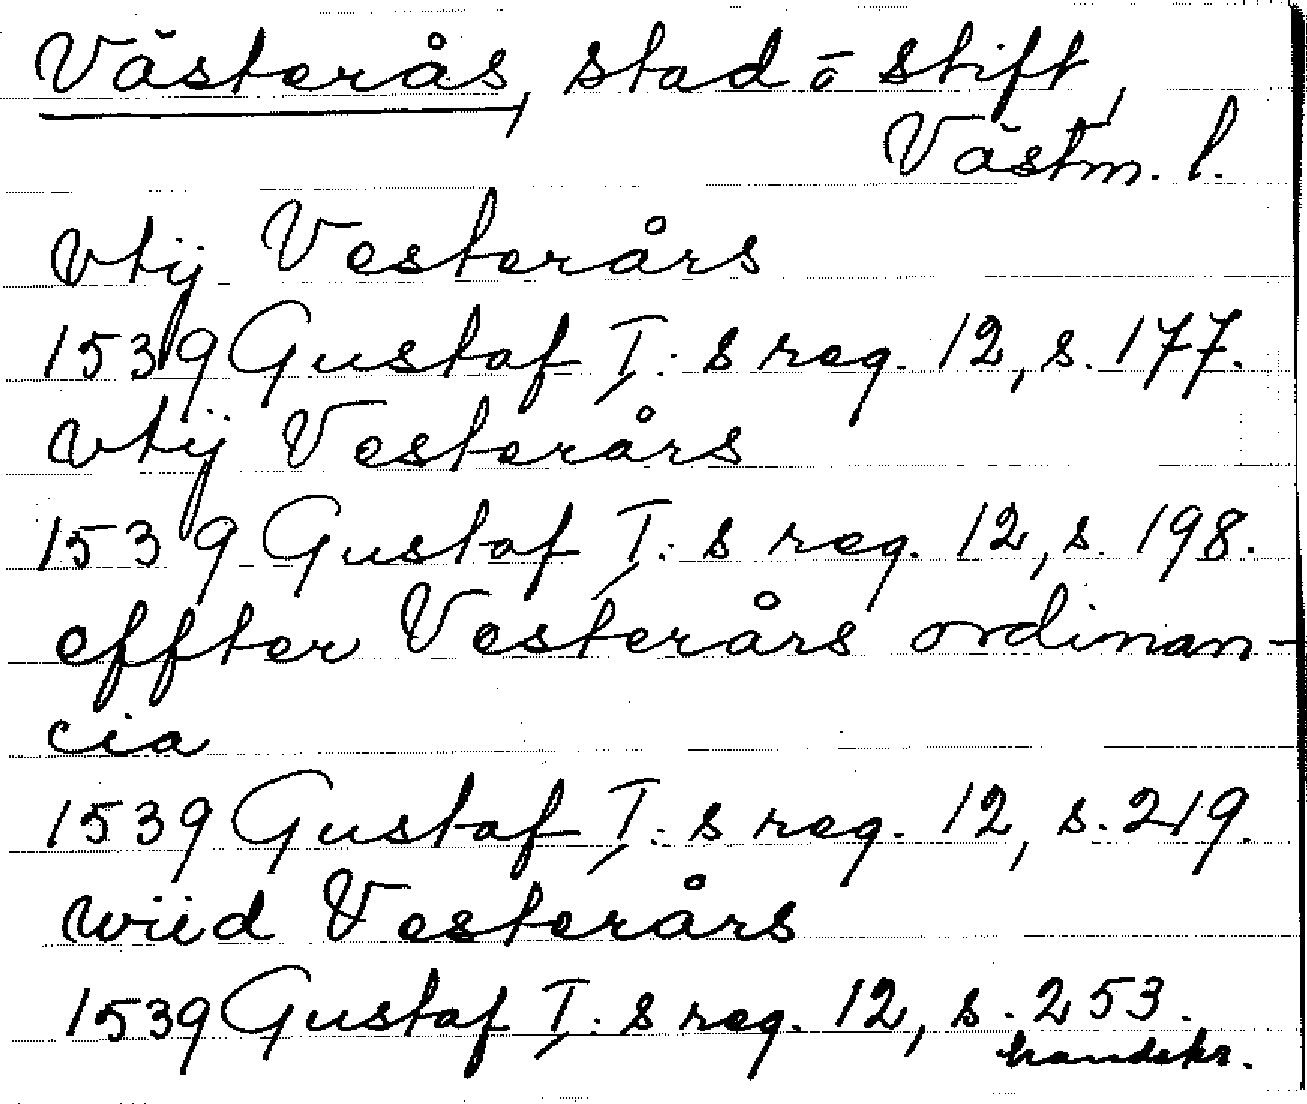 Västerås, stad o stift,
Västm. l.
vtÿ Vesterårs
1539 Gustaf I:s reg. 12, s. 177.
vtÿ Vesterårs
1539 Gustaf I:s reg. 12, s. 198.
effter Vesterårs ordinan-
cia
1539 Gustaf I:s reg. 12, s. 219.
wiid Vesterårs
1539 Gustaf I:s reg. 12, s. 253.
handskr.